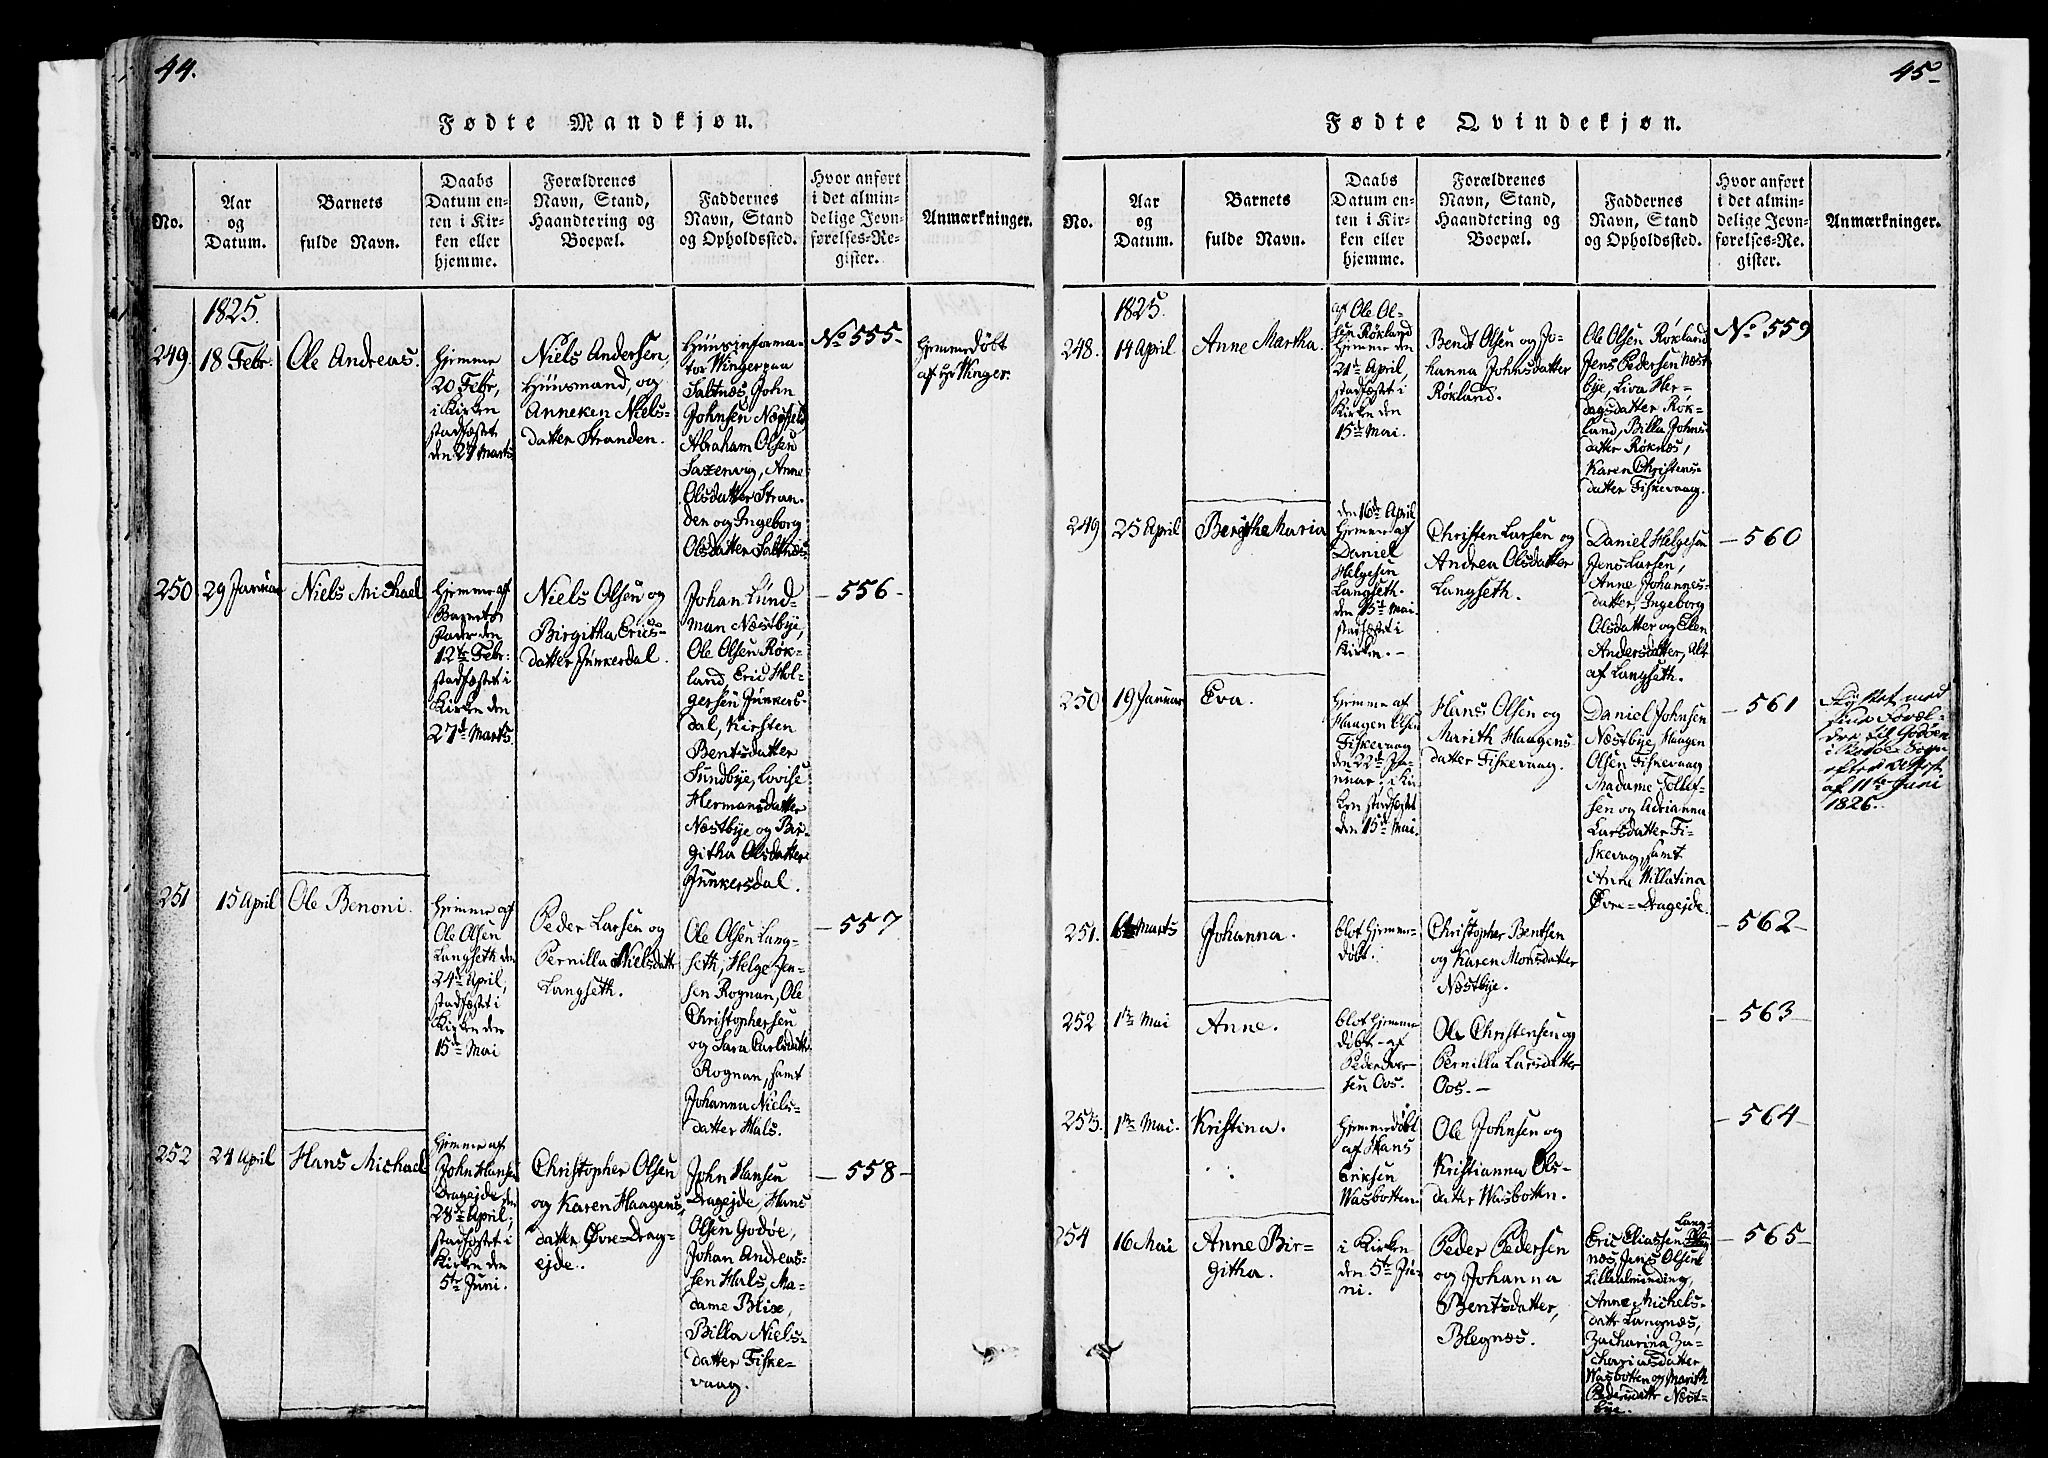 44.
Fødte Mandkjøn.
No.
Aar
og
Datum.
Barnets
fulde Navn.
Daabs
Datum en-
ten i Kir-
ken eller
hjemme.
Forældrenes
Navn, Stand,
Haandtering og
Boepæl.
Faddernes
Navn, Stand
og Opholdssted.
Hvor anført
i det almin-
delige Jevn-
førelses-Re-
gister.
Anmærkninger.
1825.
249
18 Febr.
Ole Andreas.
hjemme
20 Febr,
i Kirken
stadfæstet
den 27 Marts
Niels Andersen,
Huusmand, og
Anneken Niels-
datter Stranden.
Huusinforma-
tor Winger paa
Saltnæs, John
Johnsen
Abraham Olsen
Saxenvig, Anne
Olsdatter Stran
den og Ingeborg
Olsdatter Saltnæs
No 555-
hjemmedøbt
af Hr Winger.
250
29 Januar
Niels Michael
hjemme af
Barnets
Fader den
12te Febr.
stadfæstet i
Kirken den
27d Marts.
Niels Olsen og
Birgitha Erics-
datter Junkerdal.
Johan Lund-
man Næstbye,
Ole Olsen Røk-
land, Eric Hol-
gersen Junkers-
dal, Kirsten
Bentsdatter
Sundbye, Lovise
Hermansdatter
Næstbye og Bir-
githa Olsdatter
Junkersdal.
- 556 -
251
15 April
Ole Benoni.
hjemme af
Ole Olsen
Langseth den
24d April,
stadfæstet i
Kirken den
15d Mai
Peder Larsen og
Pernilla Nielsdatt
Langseth.
Ole Olsen Lang-
seth, Helge Jen-
sen Rognan, Ole
Christophersen
og Sara Carlsdattr
Rognan, samt
Johanna Niels-
datter Hals.
- 557
252
24 April
Hans Michael
hjemme af
John Hansen
Dragejde den
28de April,
stadfæstet i
Kirken den
5te Juni.
Christopher Olsen
og Karen Haagens-
datter Øvre-Drag-
ejde.
John Hansen
Dragejde, Hans
Olsen Godøe,
Johan Andreas-
sen Hals, Ma-
dame Blix,
Billa Niels-
datter Fiske-
vaag.
- 558 -
45-
Fødte Qvindekjøn.
No.
Aar
og
Datum.
Barnets
fulde Navn.
Daabs
Datum en-
ten i Kir-
ken eller
hjemme.
Forældrenes
Navn, Stand,
Haandtering og
Boepæl.
Faddernes
Navn, Stand
og Opholdssted.
Hvor anført
i det almin-
delige Jevn-
førelses-Re-
gister.
Anmærkninger.
1825.
248.
14 April
Anne Martha.
af Ole Ol-
sen Røkland
hjemme den
21de April,
stadfæstet i
Kirken den
15d Mai.
Bendt Olsen og Jo-
hanna Johnsdatter
Røkland.
Ole Olsen Røkland
Jens Pedersen Næst
bye, Liva Her-
dagsdatter Røk-
land, Billa Johns
datter Røknæs,
Karen Christens-
datter Fiskevaag.
No 559
249
25 April
Berethe Maria
den 16de April
hjemme af
Daniel
Helgesen
Langseth.
den 15d Mai
stadfæstet i
Kirken. -
Christen Larsen og
Andrea Olsdatter
Langseth.
Daniel Helgesen
Jens Larsen,
Anne Johannes-
datter, Ingeborg
Olsdatter og Elen
Andersdatter, Alt
af Langseth.
- 560
250
19 Januar
Eva.
hjemme af
Haagen Olsen
Fiskevaag
den 22de Ja-
nuar, i Kir-
ken stadfæstet
den 15d Mai.
Hans Olsen og
Marith Haagens-
datter Fiskevaag.
Daniel Johnsen
Næstbye, Haagen
Olsen Fiskevaag
Madame Tollef-
sen og Adrianna
Larsdatter Fi-
skevag, samt
Anne Willatina
Øvre-Dragejde
- 561
flyttet med
sine Foræl-
dre til Godøen
i Bodøe Sogn
efter Attest
af 11te Juni
1826.
251.
6te Marts
Johanna.
blot hjemme-
døbt.
Christopher Bentsen
og Karen Monsdatter
Næstbye.
- 562 -
252
1te Mai
Anne.
blot hjemme
døbt - af
Peder Iver-
sen Oos.
Ole Christensen og
Pernilla Larsdatter
Oos. -
- 563
253.
1te Mai.
Kristina.
hjemmedøbt
af Hans
Eriksen
Wasbotten.
Ole Johnsen og
Kristianna Ols-
datter Wasbotten.
- 564
254
16 Mai
Anne Bir-
githa.
i Kirken
den 5te Ju-
ni.
Peder Pedersen
og Johanna
Bentsdatter,
Blegnæs.
Eric Eliassen Lang-
næs, Jens Olsen
Lillealminding,
Anne Michels-
datr Langnæs,
Zacharina Za-
chariasdatter
Wasbotten og Marith
Pedersdattr Næst-
bye.
- 565 -